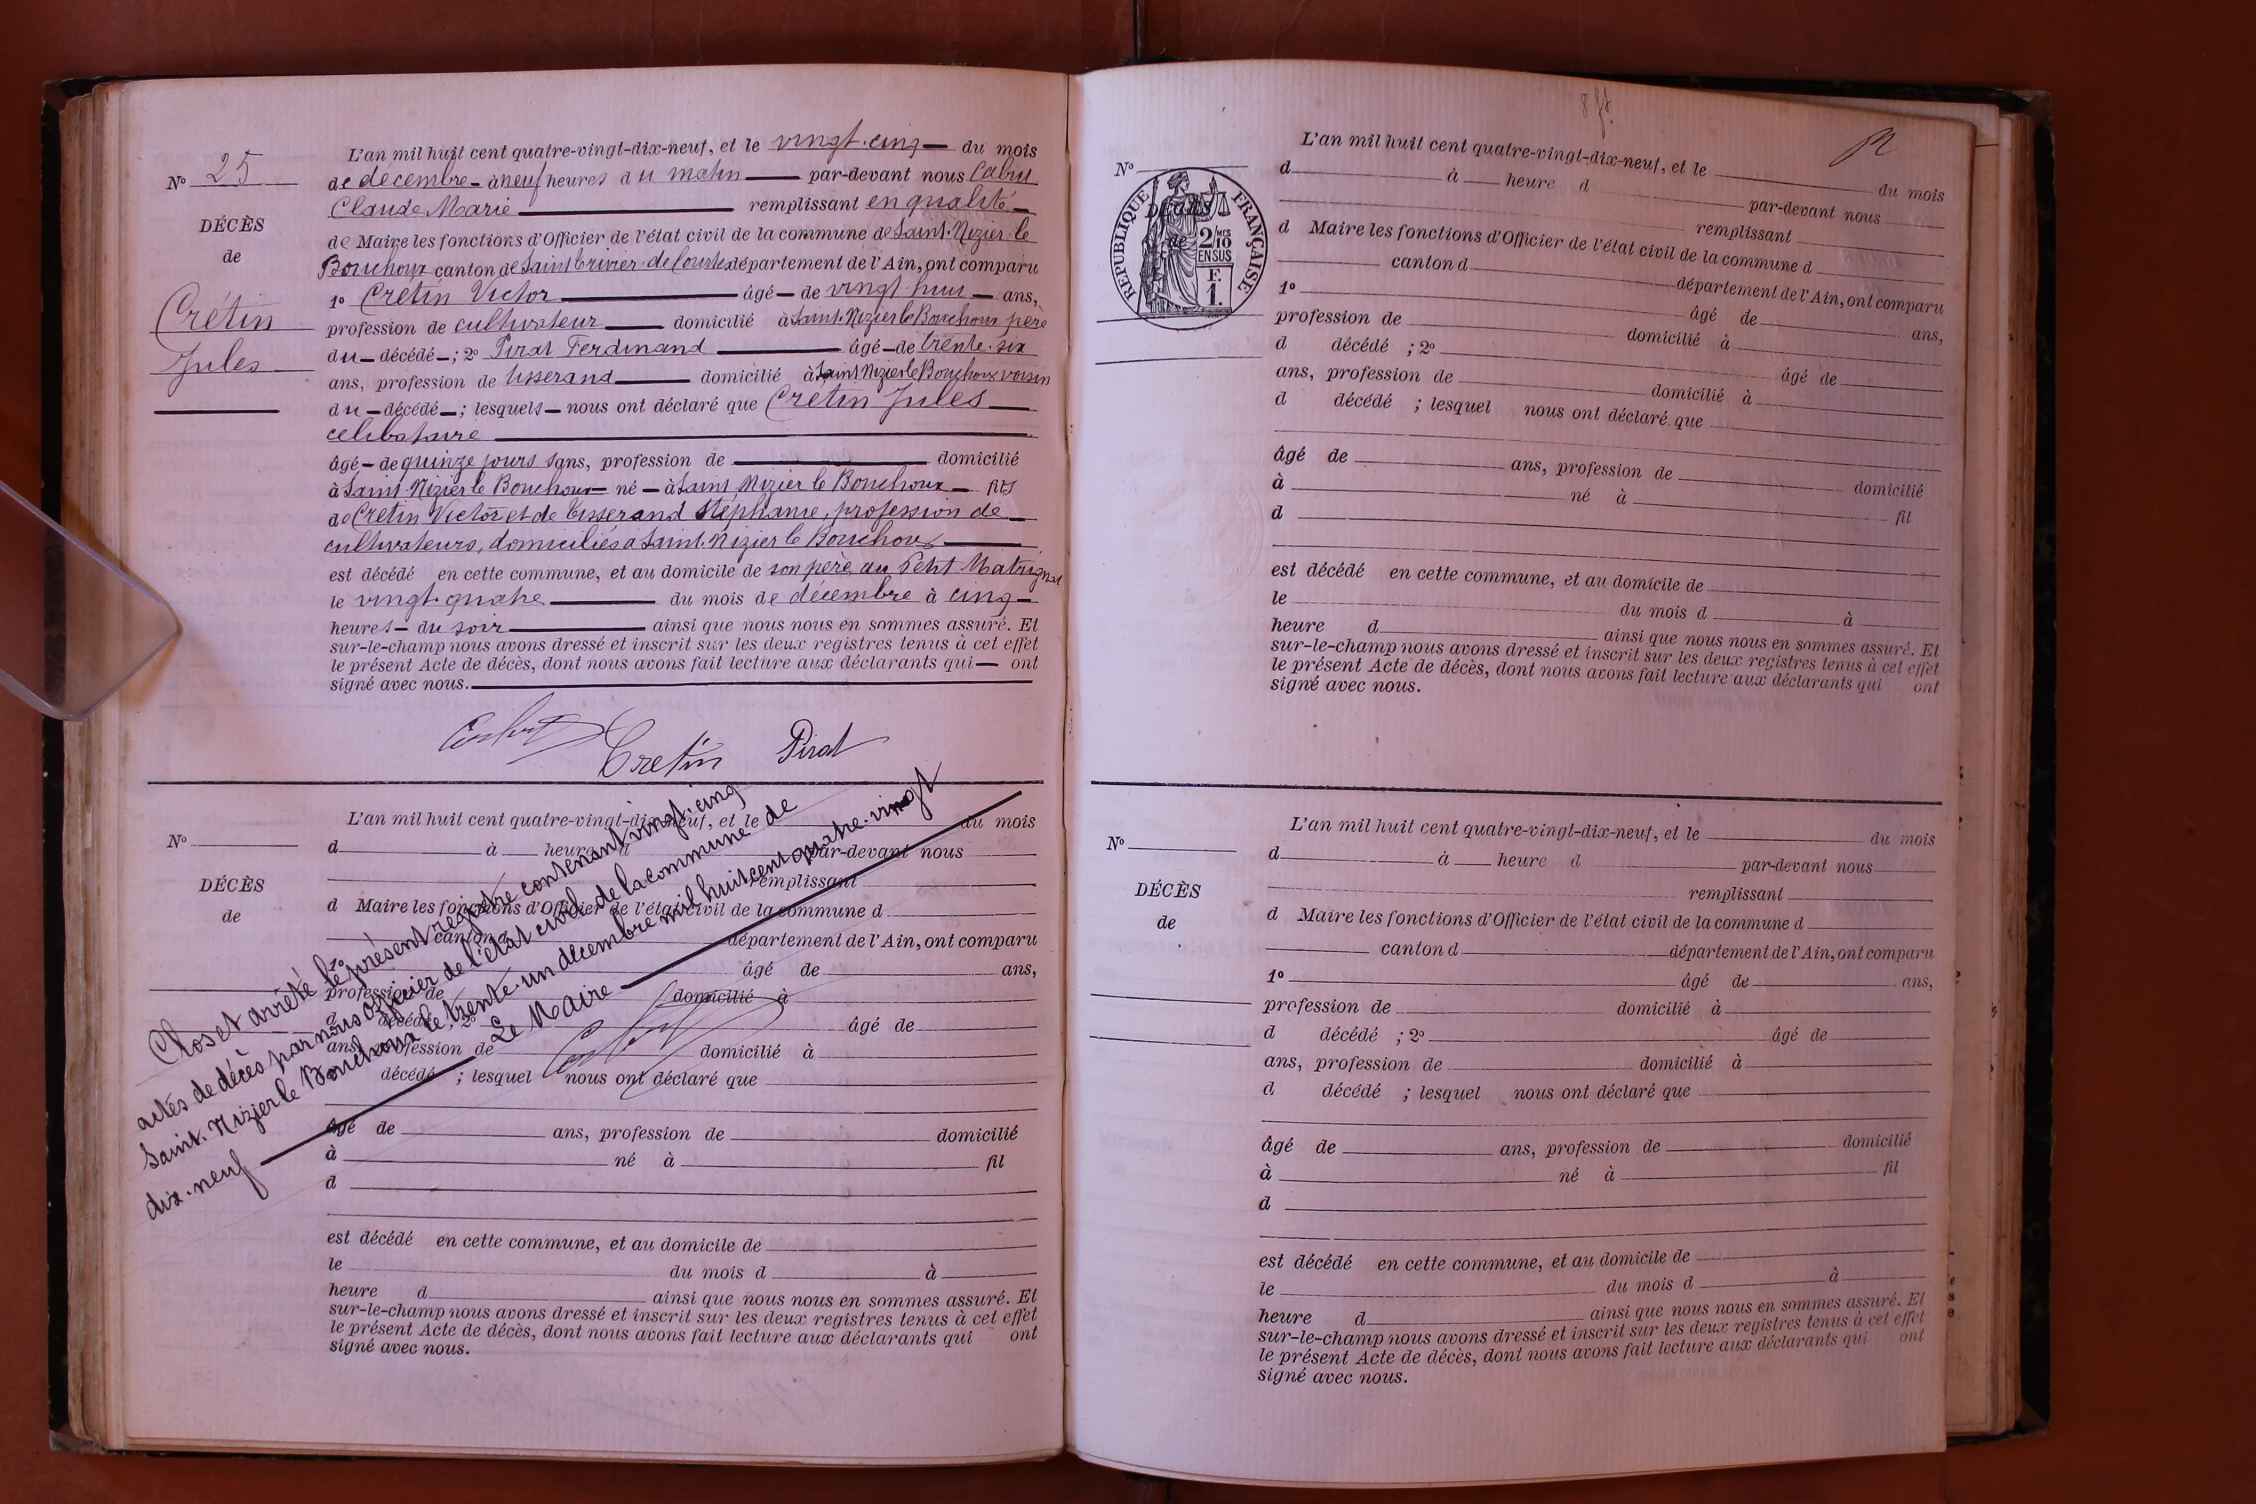 L'an mil huit cent quatre-vingt-dix-neuf, et le vingt-cinq du mois
N° 25
de décembre à neuf heures du matin par-devant nous
Claude Marie remplissant en qualité
DÉCÈS
de Maire les fonctions d'Officier de l'état civil de la commune de Saint-Nizier le
de
Bouchoux canton de Saint Trivier de Courtes département de l'Ain, ont comparu
1° Crétin Victor âgé de vingt huit ans,
Crétin
profession de cultivateur domicilié à Saint-Nizier le Bouchoux père
du décédé ; 2° Pirat Ferdinand âgé de trente-six
Jules
ans, profession de tisserand domicilié à Saint Nizier le Bouchoux voisin
du décédé ; lesquels nous ont déclaré que Crétin Jules
célibataire
âgé de quinze jours sans, profession de domicilié
à Saint-Nizier le Bouchoux né à Saint Nizier le Bouchoux fils
de Crétin Victor et de Tisserand Stéphanie, profession de
cultivateurs, domiciliés à Saint-Nizier le Bouchoux
est décédé en cette commune, et au domicile de son père au Petit Matrignat
le vingt-quatre du mois de décembre à cinq
heures du soir ainsi que nous nous en sommes assuré. Et
sur-le-champ nous avons dressé et inscrit sur les deux registres tenus à cet effet
le présent Acte de décès, dont nous avons fait lecture aux déclarants qui ont
signé avec nous.
Crétin Pirat
L'an mil huit cent quatre-vingt-dix-neuf, et le du mois
N°
d à heure d par-devant nous
remplissant
DÉCÈS
d Maire les fonctions d'Officier de l'état civil de la commune d
de
canton d département de l'Ain, ont comparu
1° âgé de ans,
profession de domicilié à
d décédé ; 2° âgé de
ans, profession de domicilié à
d décédé ; lesquel nous ont déclaré que
âgé de ans, profession de domicilié
à né à fil
d
est décédé en cette commune, et au domicile de
le du mois d à
heure d ainsi que nous nous en sommes assuré. Et
sur-le-champ nous avons dressé et inscrit sur les deux registres tenus à cet effet
le présent Acte de décès, dont nous avons fait lecture aux déclarants qui ont
signé avec nous.
Clos et arrêté le présent registre contenant vingt-cinq
actes de décès par nous officier de l'état civil de la commune de
Saint-Nizier le Bouchoux le trente-un décembre mil huit cent quatre-vingt
dix-neuf Le Maire
L'an mil huit cent quatre-vingt-dix-neuf, et le du mois
N°
d à heure d par-devant nous
remplissant
DÉCÈS
de
RÉPUBLIQUE FRANÇAISE
2/10 MES
EN SUS
F.
1.
d Maire les fonctions d'Officier de l'état civil de la commune d
canton d département de l'Ain, ont comparu
1° âgé de ans,
profession de domicilié à
d décédé ; 2° âgé de
ans, profession de domicilié à
d décédé ; lesquel nous ont déclaré que
âgé de ans, profession de domicilié
à né à fil
d
est décédé en cette commune, et au domicile de
le du mois d à
heure d ainsi que nous nous en sommes assuré. Et
sur-le-champ nous avons dressé et inscrit sur les deux registres tenus à cet effet
le présent Acte de décès, dont nous avons fait lecture aux déclarants qui ont
signé avec nous.
L'an mil huit cent quatre-vingt-dix-neuf, et le du mois
N°
d à heure d par-devant nous
remplissant
DÉCÈS
d Maire les fonctions d'Officier de l'état civil de la commune d
de
canton d département de l'Ain, ont comparu
1° âgé de ans,
profession de domicilié à
d décédé ; 2° âgé de
ans, profession de domicilié à
d décédé ; lesquel nous ont déclaré que
âgé de ans, profession de domicilié
à né à fil
d
est décédé en cette commune, et au domicile de
le du mois d à
heure d ainsi que nous nous en sommes assuré. Et
sur-le-champ nous avons dressé et inscrit sur les deux registres tenus à cet effet
le présent Acte de décès, dont nous avons fait lecture aux déclarants qui ont
signé avec nous.